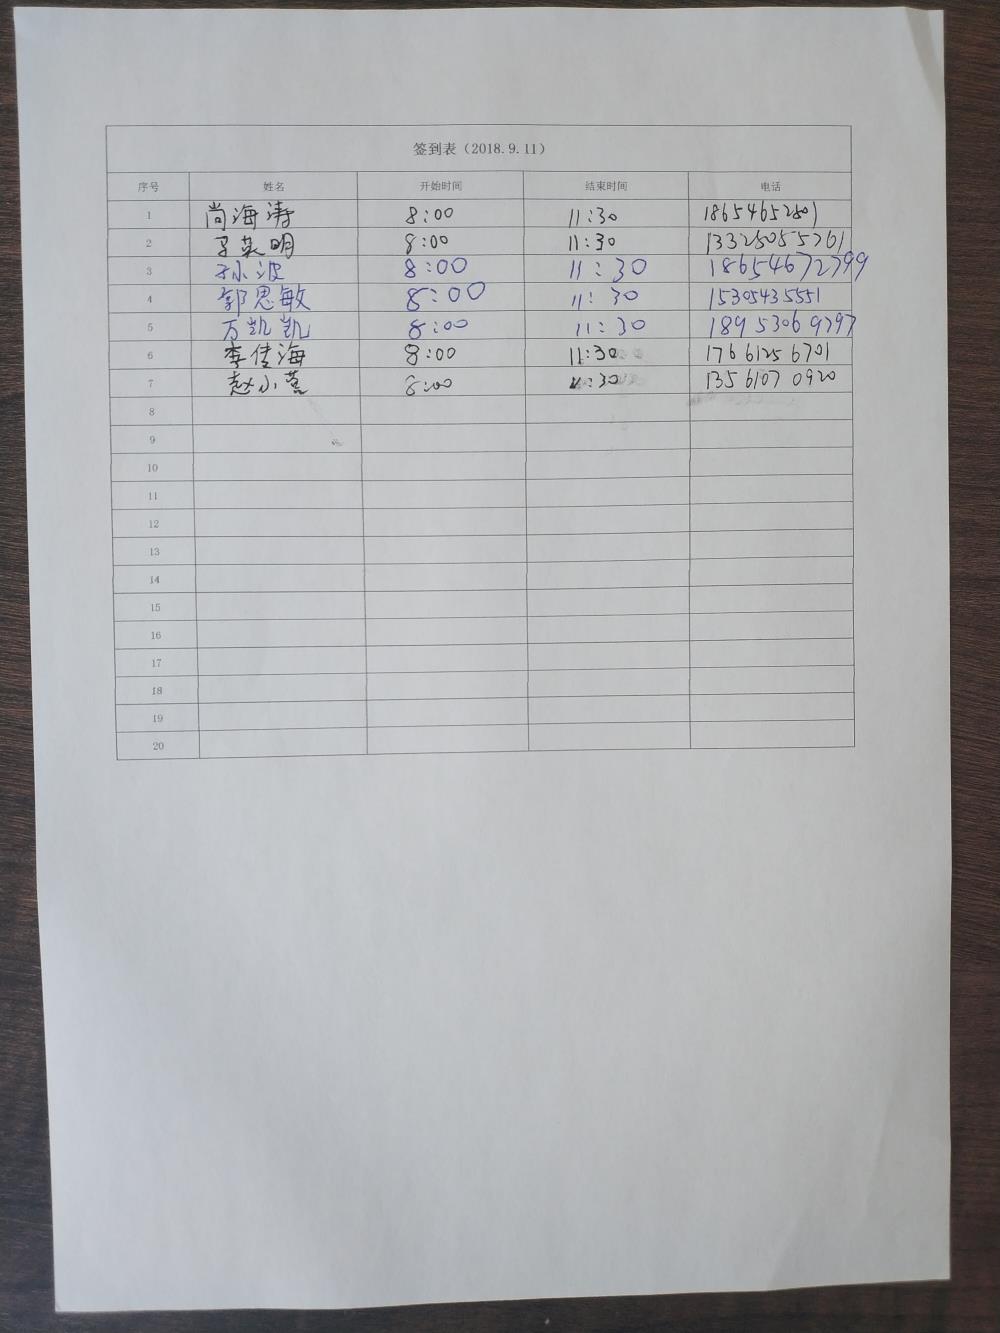 签到表（2018.9.11）
序号 姓名 开始时间 结束时间 电话
1 尚海涛 8:00 11:30 18654652801
2 英明 8:00 11:30 13328055761
3 孙波 8:00 11:30 18654672799
4 郭思敏 8:00 11:30 15305435551
5 万凯凯 8:00 11:30 18953069797
6 李佳海 8:00 11:30 17661256701
7 赵小 8:00 11:30 13561070920
8
9
10
11
12
13
14
15
16
17
18
19
20